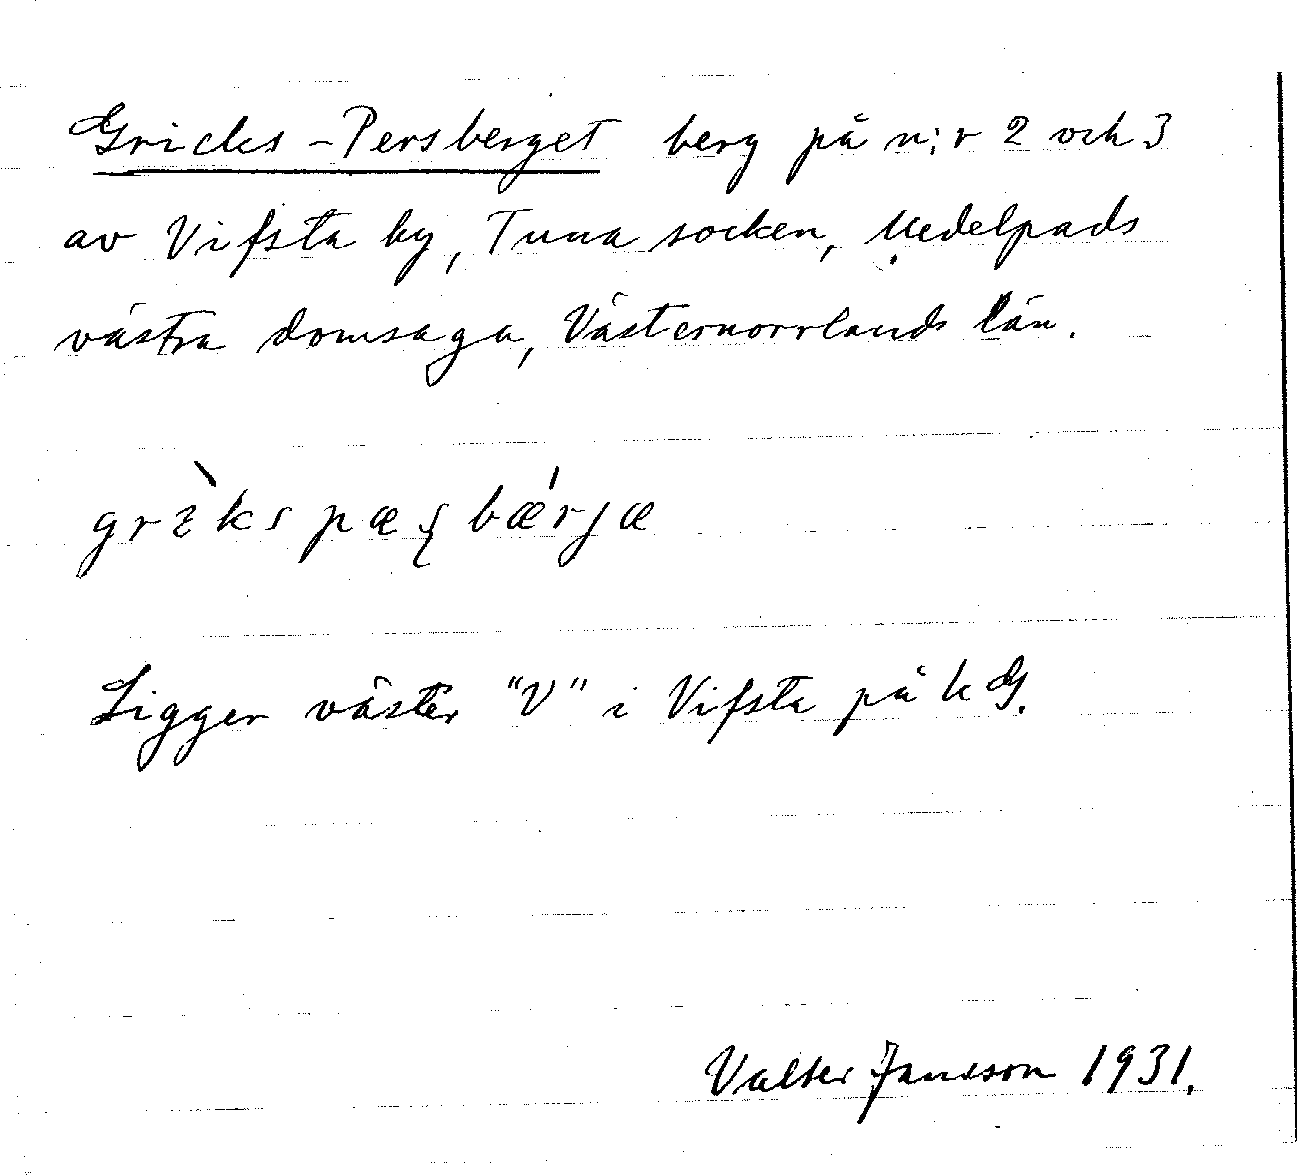 Gricks-Persberget berg på n:r 2 och 3
av Vifsta by, Tuna socken, Medelpads
västra domsaga, Västernorrlands län.
bærjæ
Ligger väster "V" i Vifsta på k G.
Valter Jansson 1931.